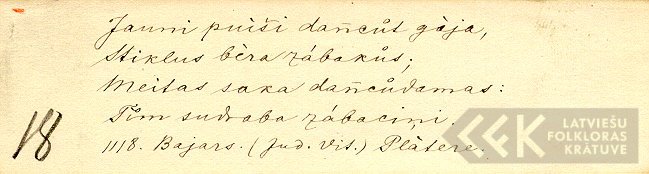 Jauni puiši dañcůt gàja,
Stiklus bēra zábakůs;
Meitas saka dañcůdamas:
Tìm sudraba zábaciņi.
18
1118. Bajars. (Jud. Vit.) Plātere.
LATVIEŠU
FOLKLORAS
KRĀTUVE